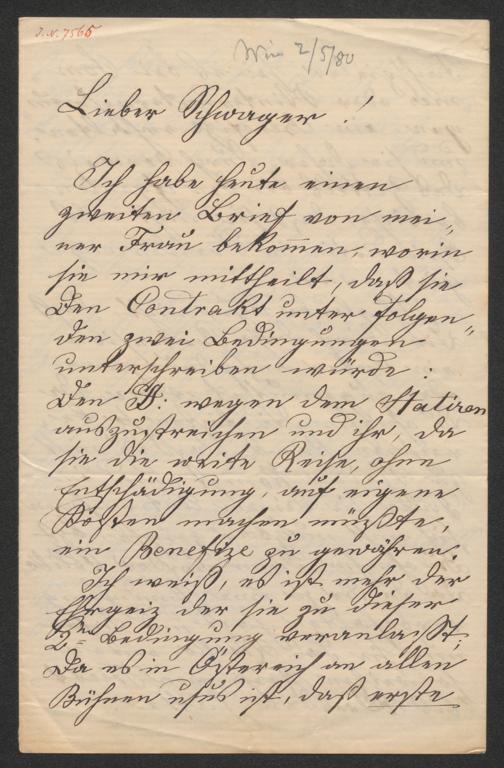 J.N. 7565
Wien 2/5/80
Lieber Schwager!
Ich habe heute einen
zweiten Brief von mei„
ner Frau bekommen, worin
sie mir mittheilt, daß sie
den Contrakt unter folgen„
den zwei Bedingungen
unterschreiben würde:
Den §: wegen dem Statiren
auszustreichen und ihr, da
sie die weite Reise, ohne
Entschädigung, auf eigene
Kosten machen müßte,
ein Benefize zu gewähren.
Ich weiß, es ist mehr der
Ehrgeiz der sie zu dieser
2ten Bedingung veranlaßt;
da es in Österreich an allen
Bühnen usus ist, daß erste